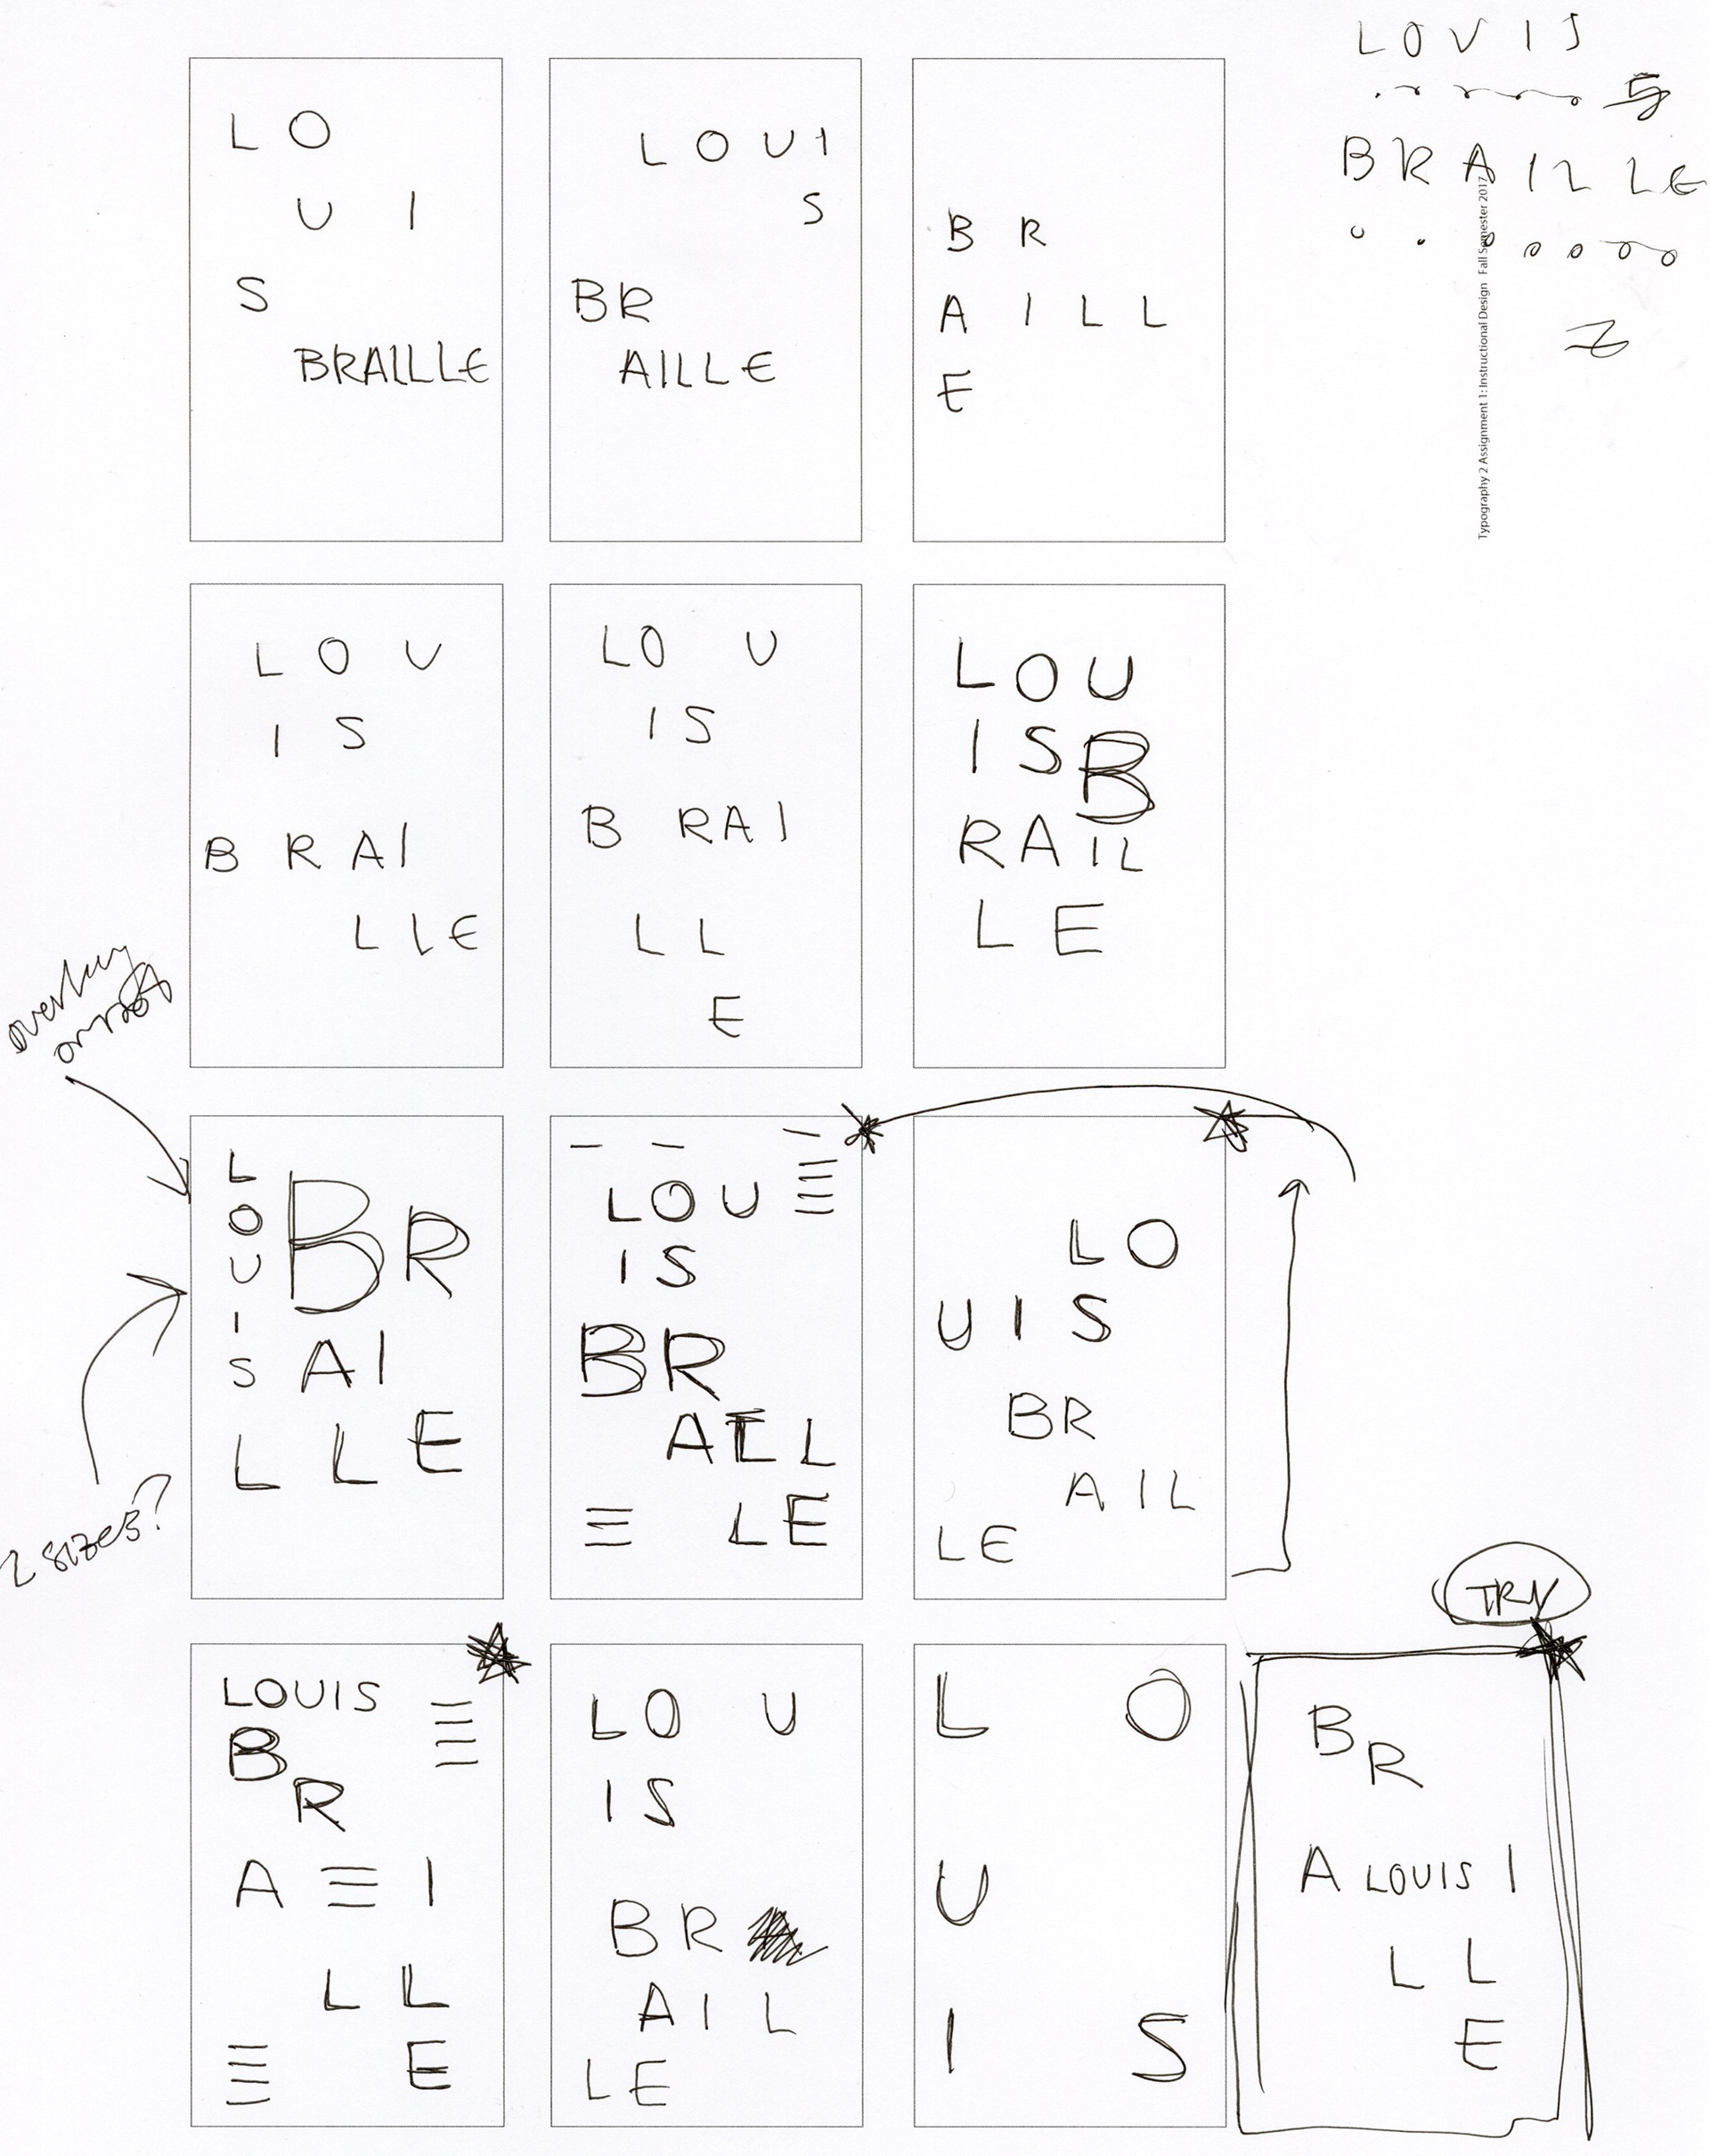 LOUIS
BRAILLE
Typography 2 Assignment 1: Instructional Design Fall Semester 2017
L O
U I
S
BRAILLE
L O U I
S
BR
AILLE
B R
A I L L
E
L O U
I S
B R A I
L L E
L O U
I S
B R A I
L L
E
L O U
I S B
R A I L
L E
overlay
2 SIZES?
L
O
U
I
S
B R
A I
L L E
L O U
I S
B R
A I L L
L E
L O
U I S
B R
A I L
L E
TRY
LOUIS
B
R
A I
L L
E
L O U
I S
B R
A I L
L E
L O
U
I S
B
R
A LOUIS I
L L
E